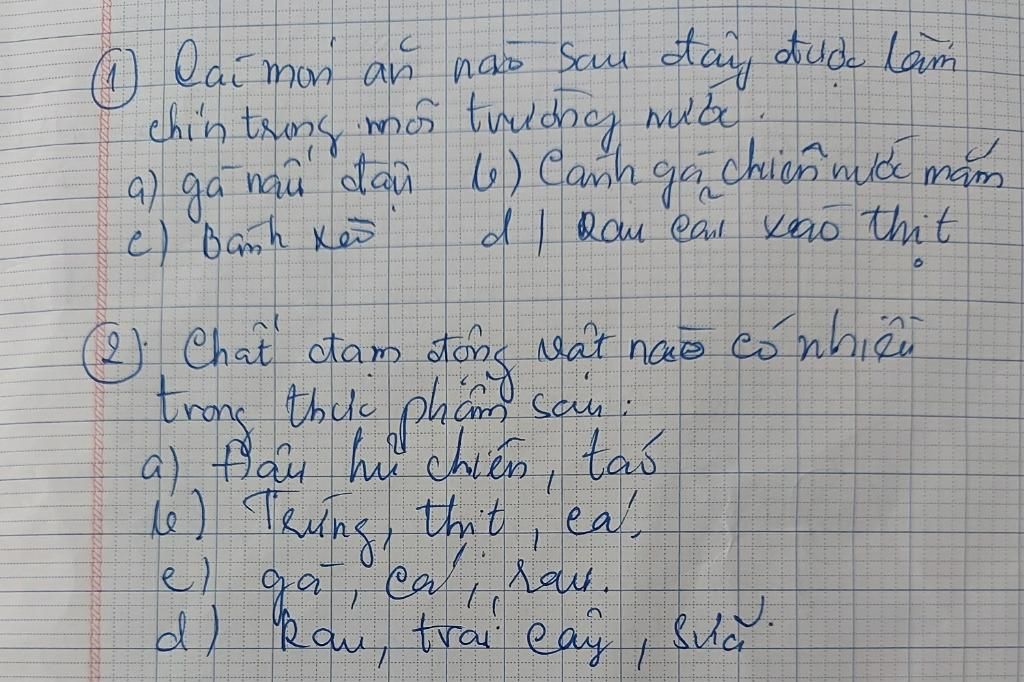 ① Cái món ăn nào sau đây được làm
chín trong môi trường nước.
a) gà nấu đậu b) Canh gà chiên nước mắm
c) Bánh xèo d) Rau cải xào thịt
② Chất đạm động vật nào có nhiều
trong thực phẩm sau:
a) Đậu hủ chiên, táo
b) Trứng, thịt, cá.
c) gà, cá, rau.
d) Rau, trái cây, sữa.